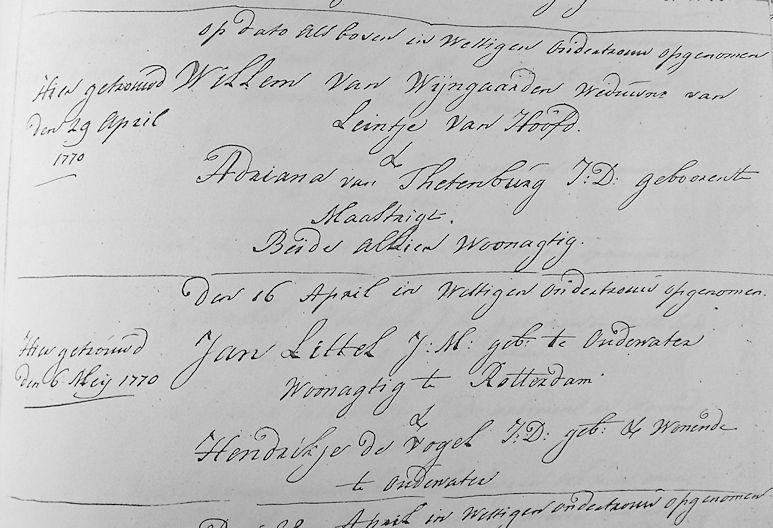 op dato als boven in Wettigen Ondertrouw opgenomen
Hier getrouwd
den 29 April
1770
Willem van Wijngaarden Weduwne van
Leintje van Hoofd.
&
Adriana van Thetenburg J:D: geboore t
Maastrigt.
Beide alhier Woonagtig.
Den 16 April in Wettigen Ondertrouw opgenomen.
Hier getrouwd
den 6 Meij 1770
Jan Littel J:M: geb: te Oudewater
Woonagtig te Rotterdam
&
Hendrikje de Vogel J:D: geb: & Wonende
te Oudewater
28 April in Wettigen Ondertrouw opgenomen